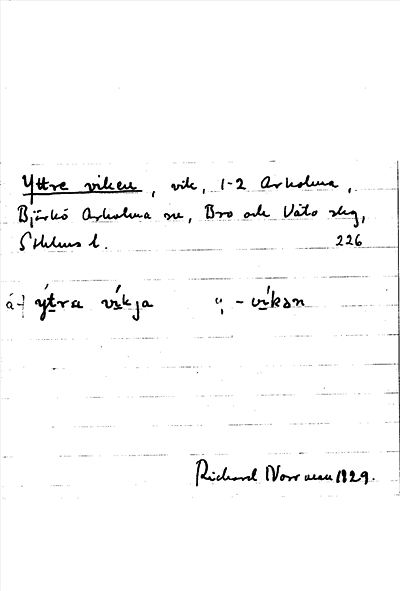 Yttre viken, vik, 1-2 Arholma,
Björkö Arholma sn, Bro och Vätö skg,
Sthlms l. 226
á-) ýtra víkja " - víkan
Richard Norrman 1929.